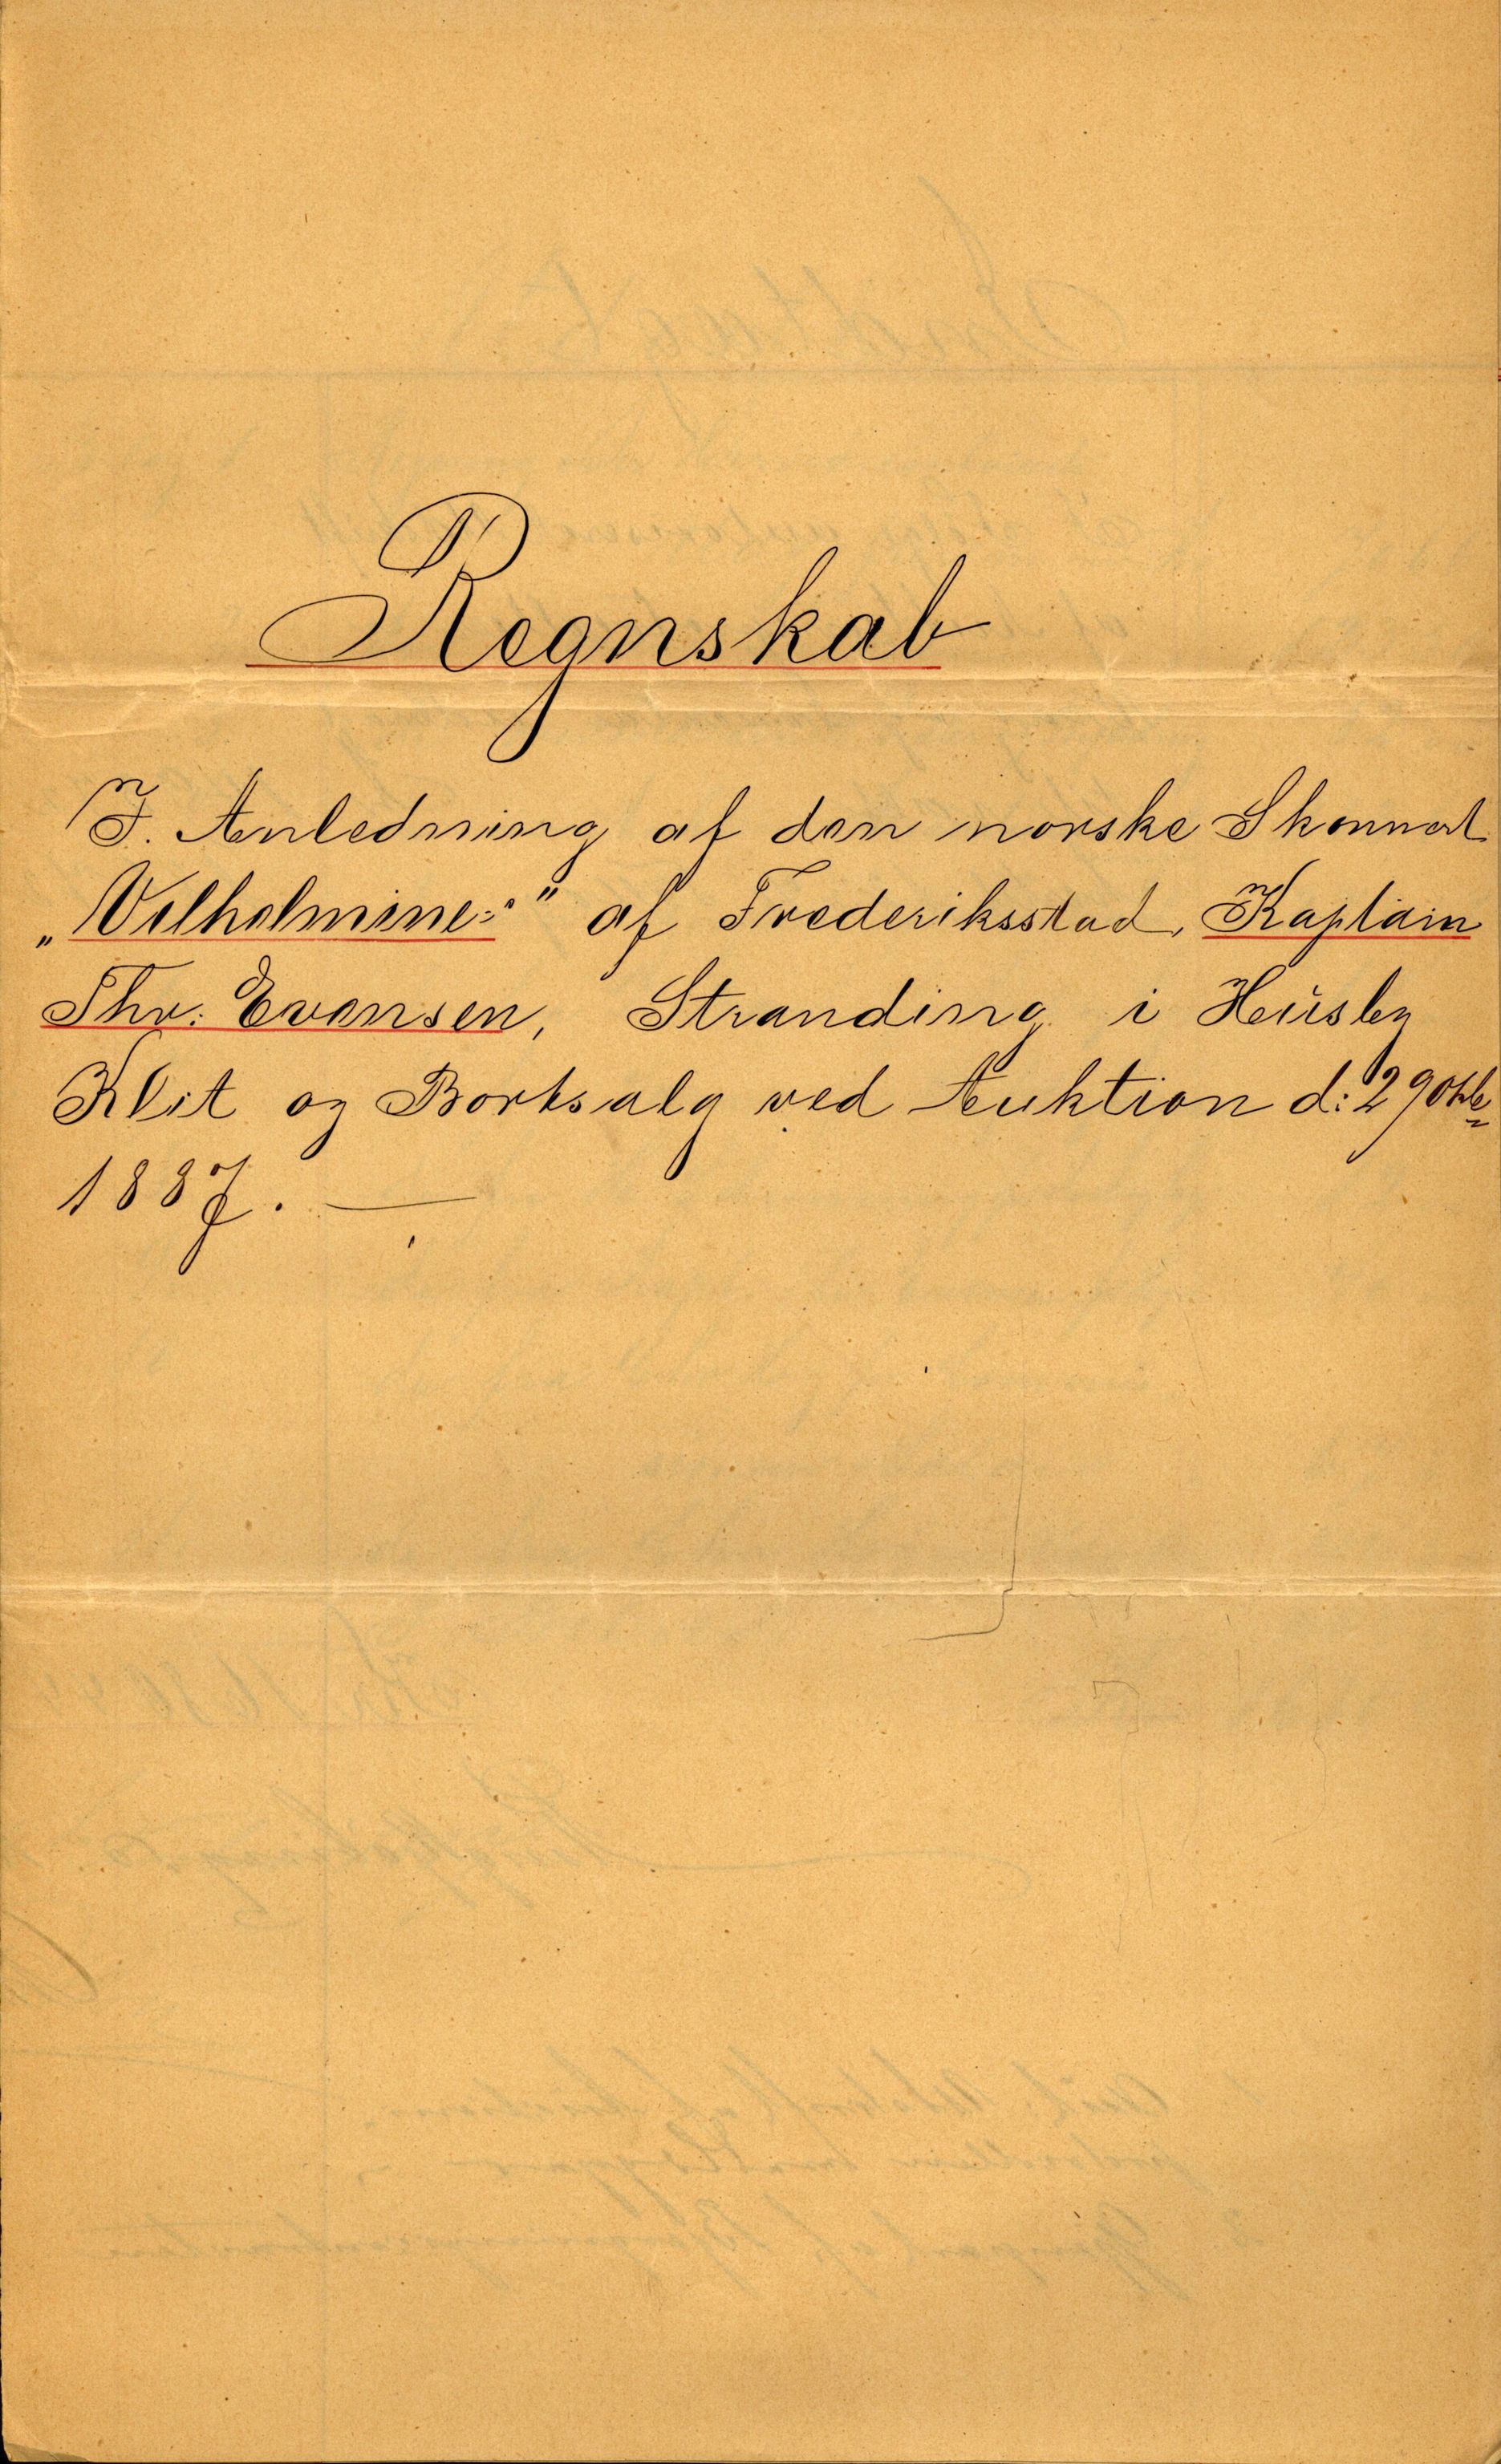 Regnskab
I. Anledning af den norske Skonnert
„Velhelmine:" af Frederiksstad, Kaptain
Thv: Evensen, Stranding i Húsby
Klit og Bortsalg ved Auktion d: 29 Okbr
1887. —